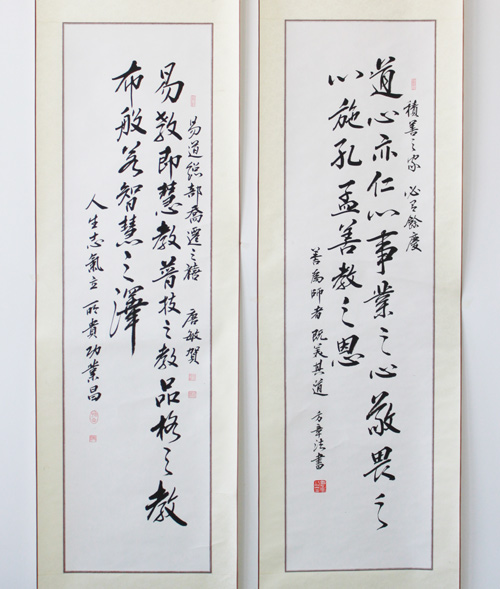 積善之家 必有餘慶
道心亦仁心事業之心敬畏之
心施孔孟善教之恩
善為師者 既美其道 方章法書
易道總部喬遷之禧 唐敏賀
易教即慧教普技之教品格之教
布般若智慧之澤
人生志氣立 所貴功業昌